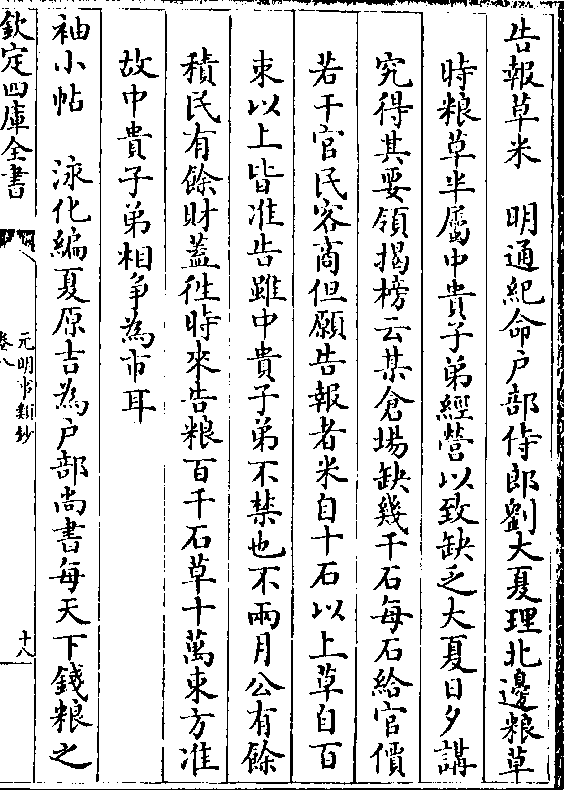 告報草米　明通紀命户部侍郎劉大夏理北邊粮草
時粮草半屬中貴子弟經營以致缺乏大夏日夕講
究得其要領揭榜云某倉塲缺幾千石每石給官價
若干官民客商但願告報者米自十石以上草自百
束以上皆准告雖中貴子弟不禁也不兩月公有餘
積民有餘財蓋徃時來告粮百千石草十萬束方准
故中貴子弟相争為市耳
袖小帖　泳化編夏原吉為户部尚書每天下錢粮之
欽定四庫全書
元明事類鈔
卷八
十八